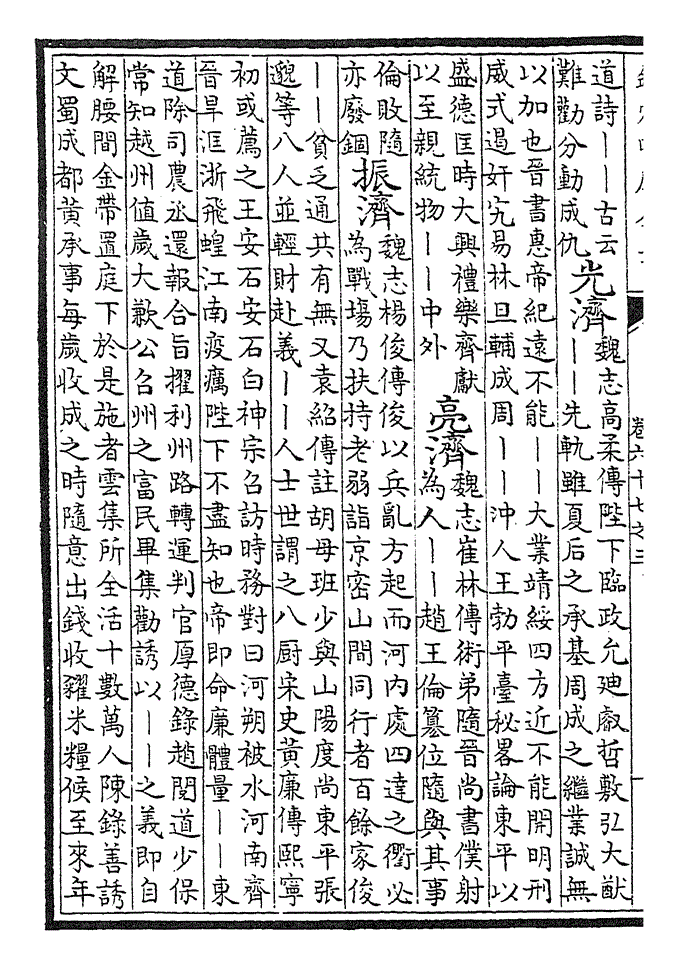 道詩丨丨古云
難勸分動成仇
光濟
魏志高柔傳陛下臨政允廸叡哲敷弘大猷
丨丨先軌雖夏后之承基周成之繼業誠無
以加也晉書惠帝紀遠不能丨丨大業靖綏四方近不能開明刑
威式遏奸宄易林旦輔成周丨丨沖人王勃平臺秘畧論東平以
盛德匡時大興禮樂齊獻
以至親統物丨丨中外
亮濟
魏志崔林傳術弟隨晉尚書僕射
為人丨丨趙王倫簒位隨與其事
倫敗隨
亦廢錮
振濟
魏志楊俊傳俊以兵亂方起而河内處四達之衢必
為戰塲乃扶持老弱詣京密山間同行者百餘家俊
丨丨貧乏通共有無又袁紹傳註胡母班少與山陽度尚東平張
邈等八人並輕財赴義丨丨人士世謂之八厨宋史黄廉傳熙寧
初或薦之王安石安石白神宗召訪時務對曰河朔被水河南齊
晉旱淮浙飛蝗江南疫癘陛下不盡知也帝即命廉體量丨丨東
道除司農丞還報合旨擢利州路轉運判官厚德錄趙閱道少保
常知越州值歲大歉公召州之富民畢集勸誘以丨丨之義即自
解腰間金帶置庭下於是施者雲集所全活十數萬人陳錄善誘
文蜀成都黄承事每歲收成之時隨意出錢收糴米糧候至來年
卷六十七之